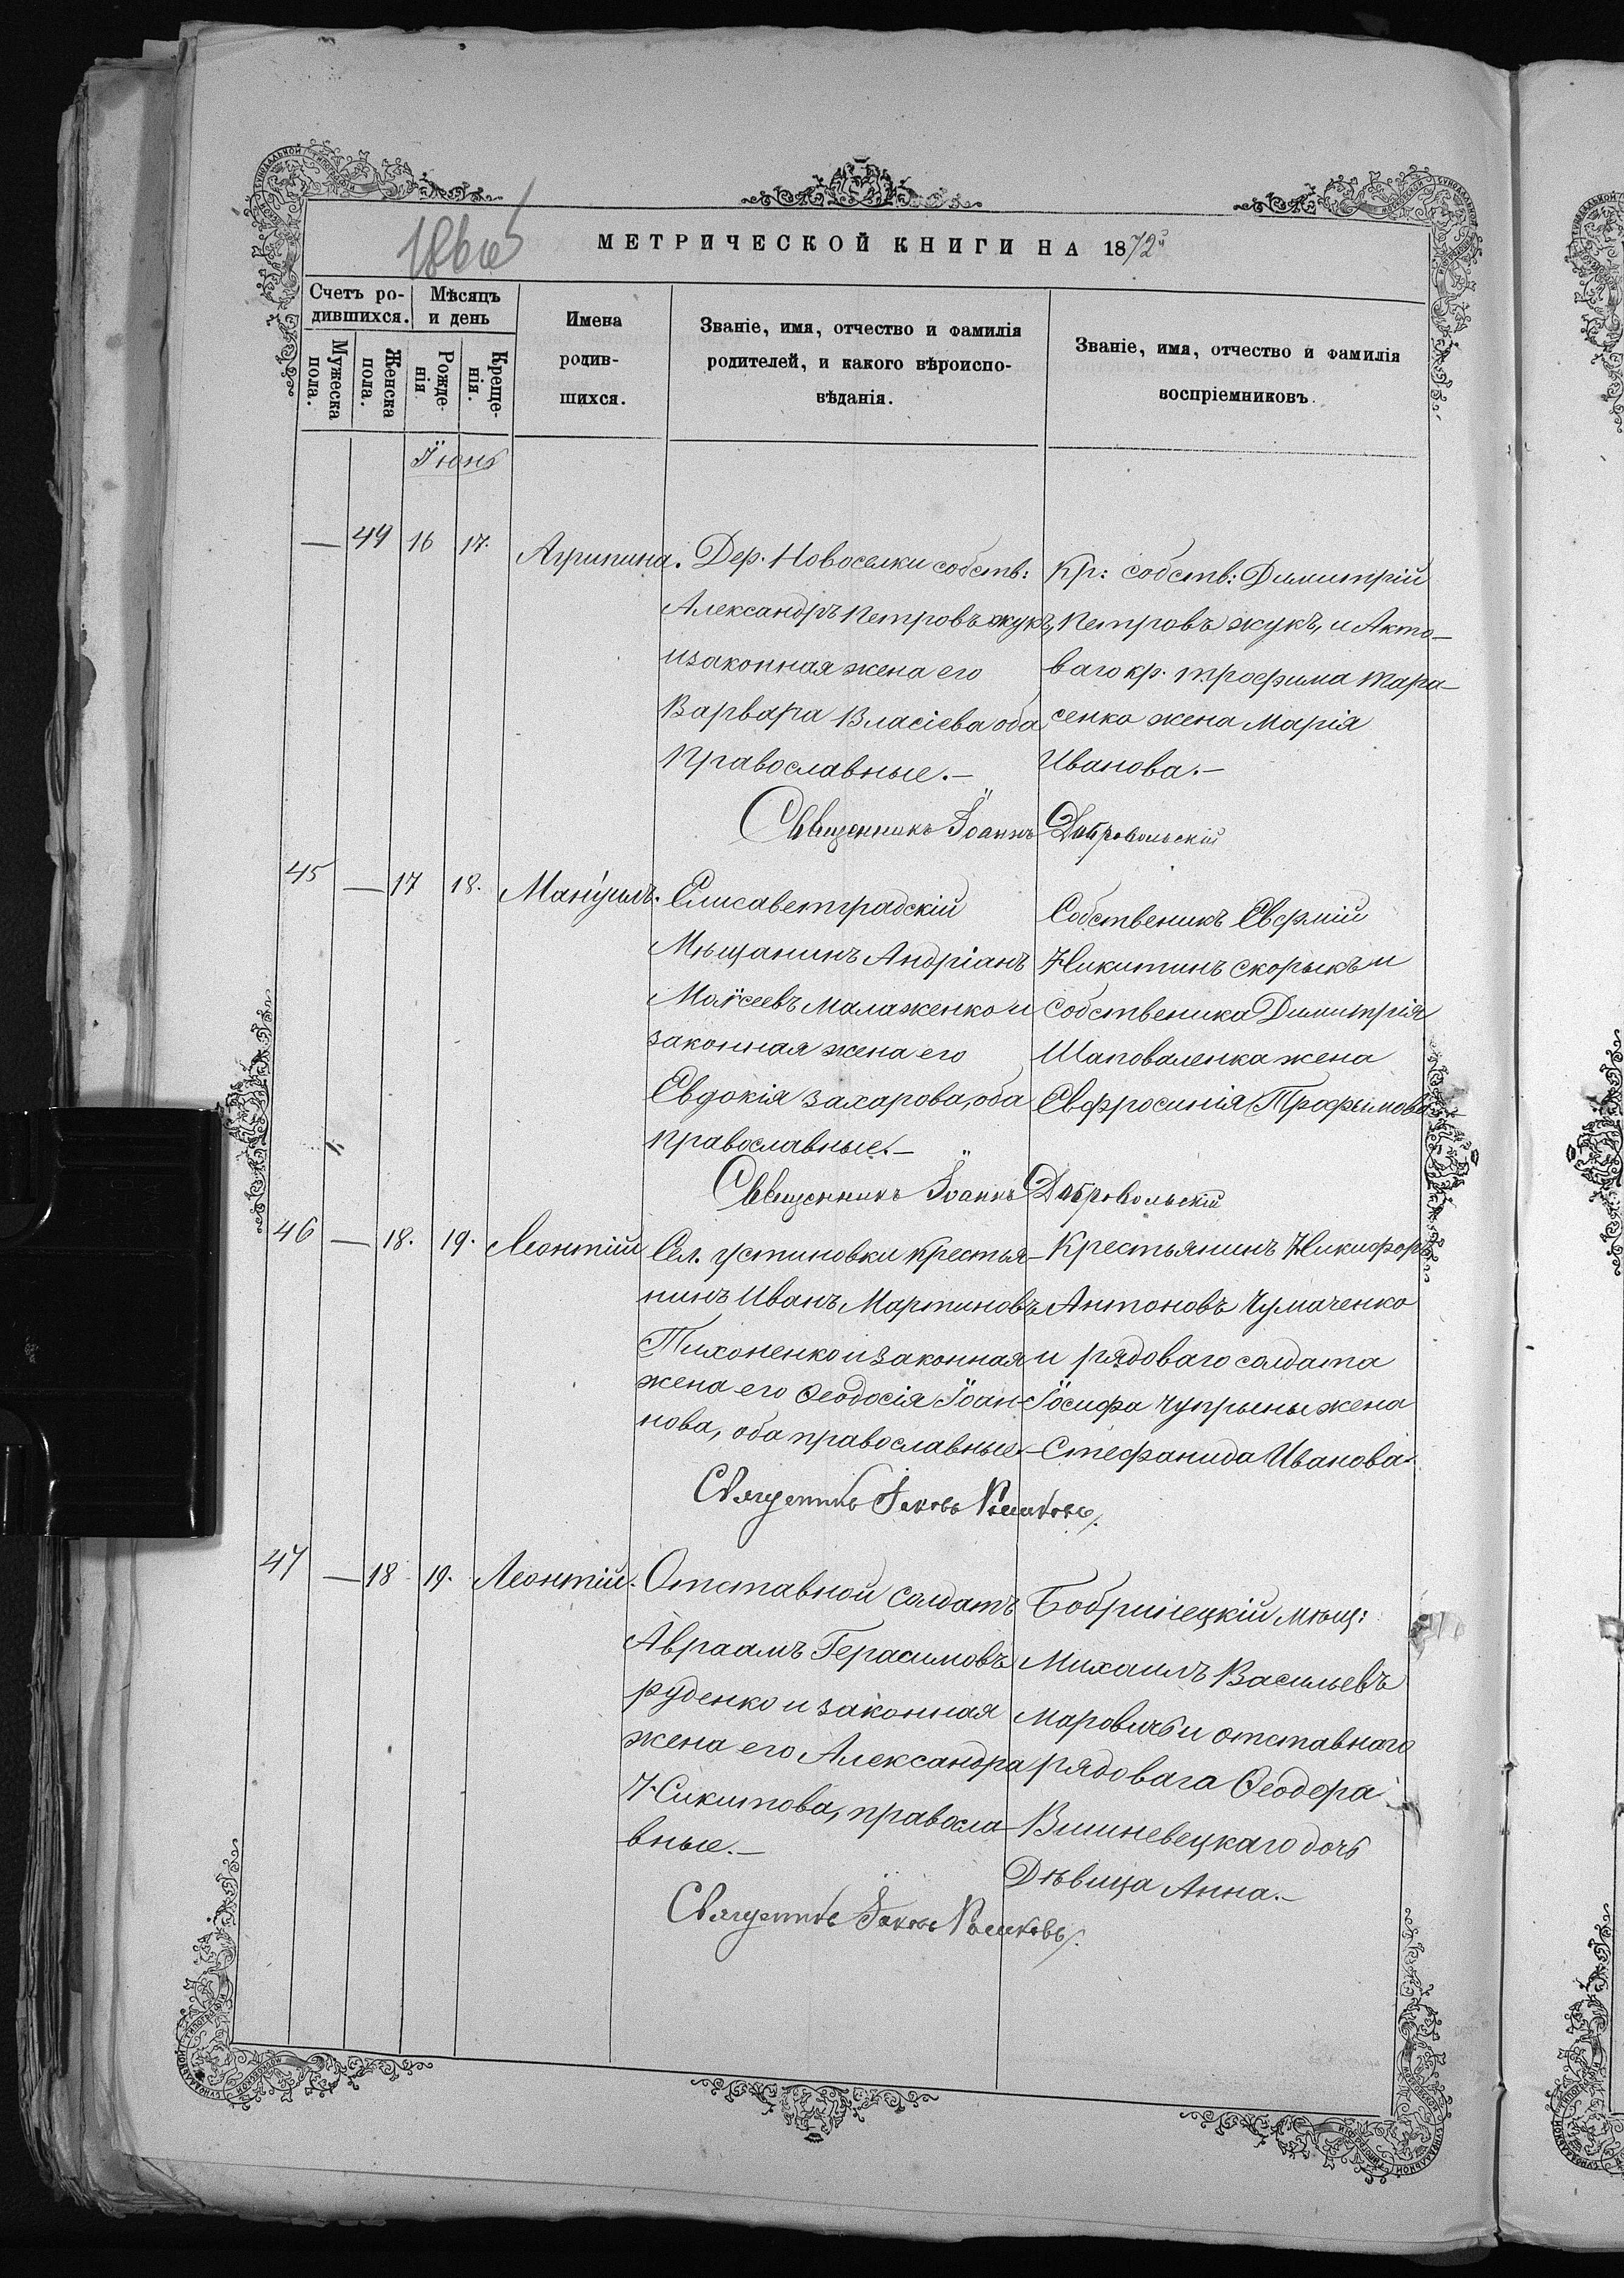 МЕТРИЧЕСКОЙ КНИГИ НА 1872й
Счетъ родившихся.
Мѣсяцъ и день
Имена родив-
шихся.
Званіе, имя, отчество и фамилія
родителей, и какого вѣроиспо-
вѣданія.
Званіе, имя, отчество и фамилія
воспріемниковъ.
Мужеска пола.
Женска пола.
Рожде-
нія
Креще-
нія.
Іюнь
— 44 16 17. Агрипина.
Дер. Новоселки собств:
Александръ Петровъ жукъ,
и законная жена его
Варвара Власіева оба
православные.—
Кр: собств: Димитрій
Петровъ жукъ, и Акто-
ваго кр. трофима тара-
сенко жена Марія
Иванова.—
Священникъ Іоаннъ Добровольскій
45 — 17 18. Мануилъ.
Елисаветградскій
Мѣщанинъ Андріанъ
Моѵсеевъ Малаженко и
законная жена его
Евдокія захарова, оба
православные.—
Собственикъ Евфмій
Никитинъ скорыкъ и
Собственика Димитрія
Шаповаленка жена
Евфросинія Трофимова
Священникъ Іоаннъ Добровольскій
46 — 18. 19. Леонтій
Сел. устиновки крестья-
нинъ Иванъ Мартиновъ
Тихоненко и законная
жена его Ѳеодосія Іоан-
нова, оба православные.—
Крестьянинъ Никифоръ
Антоновъ Чумаченко
и рядоваго солдата
Іосифа Чупрыны жена
Стефанида Иванова.
Священникъ Іаковъ
47 — 18 19. Леонтій.
Отставной солдатъ
Авраамъ Герасимовъ
руденко и законная
жена его Александра
Никитова, правосла-
вные.—
Бобринецкій мѣщ:
Михаилъ Васильевъ
Маровичъ и отставнаго
рядовага Ѳеодора
Вишневецкаго дочь
Дѣвица Анна.—
Священникъ Іаковъ